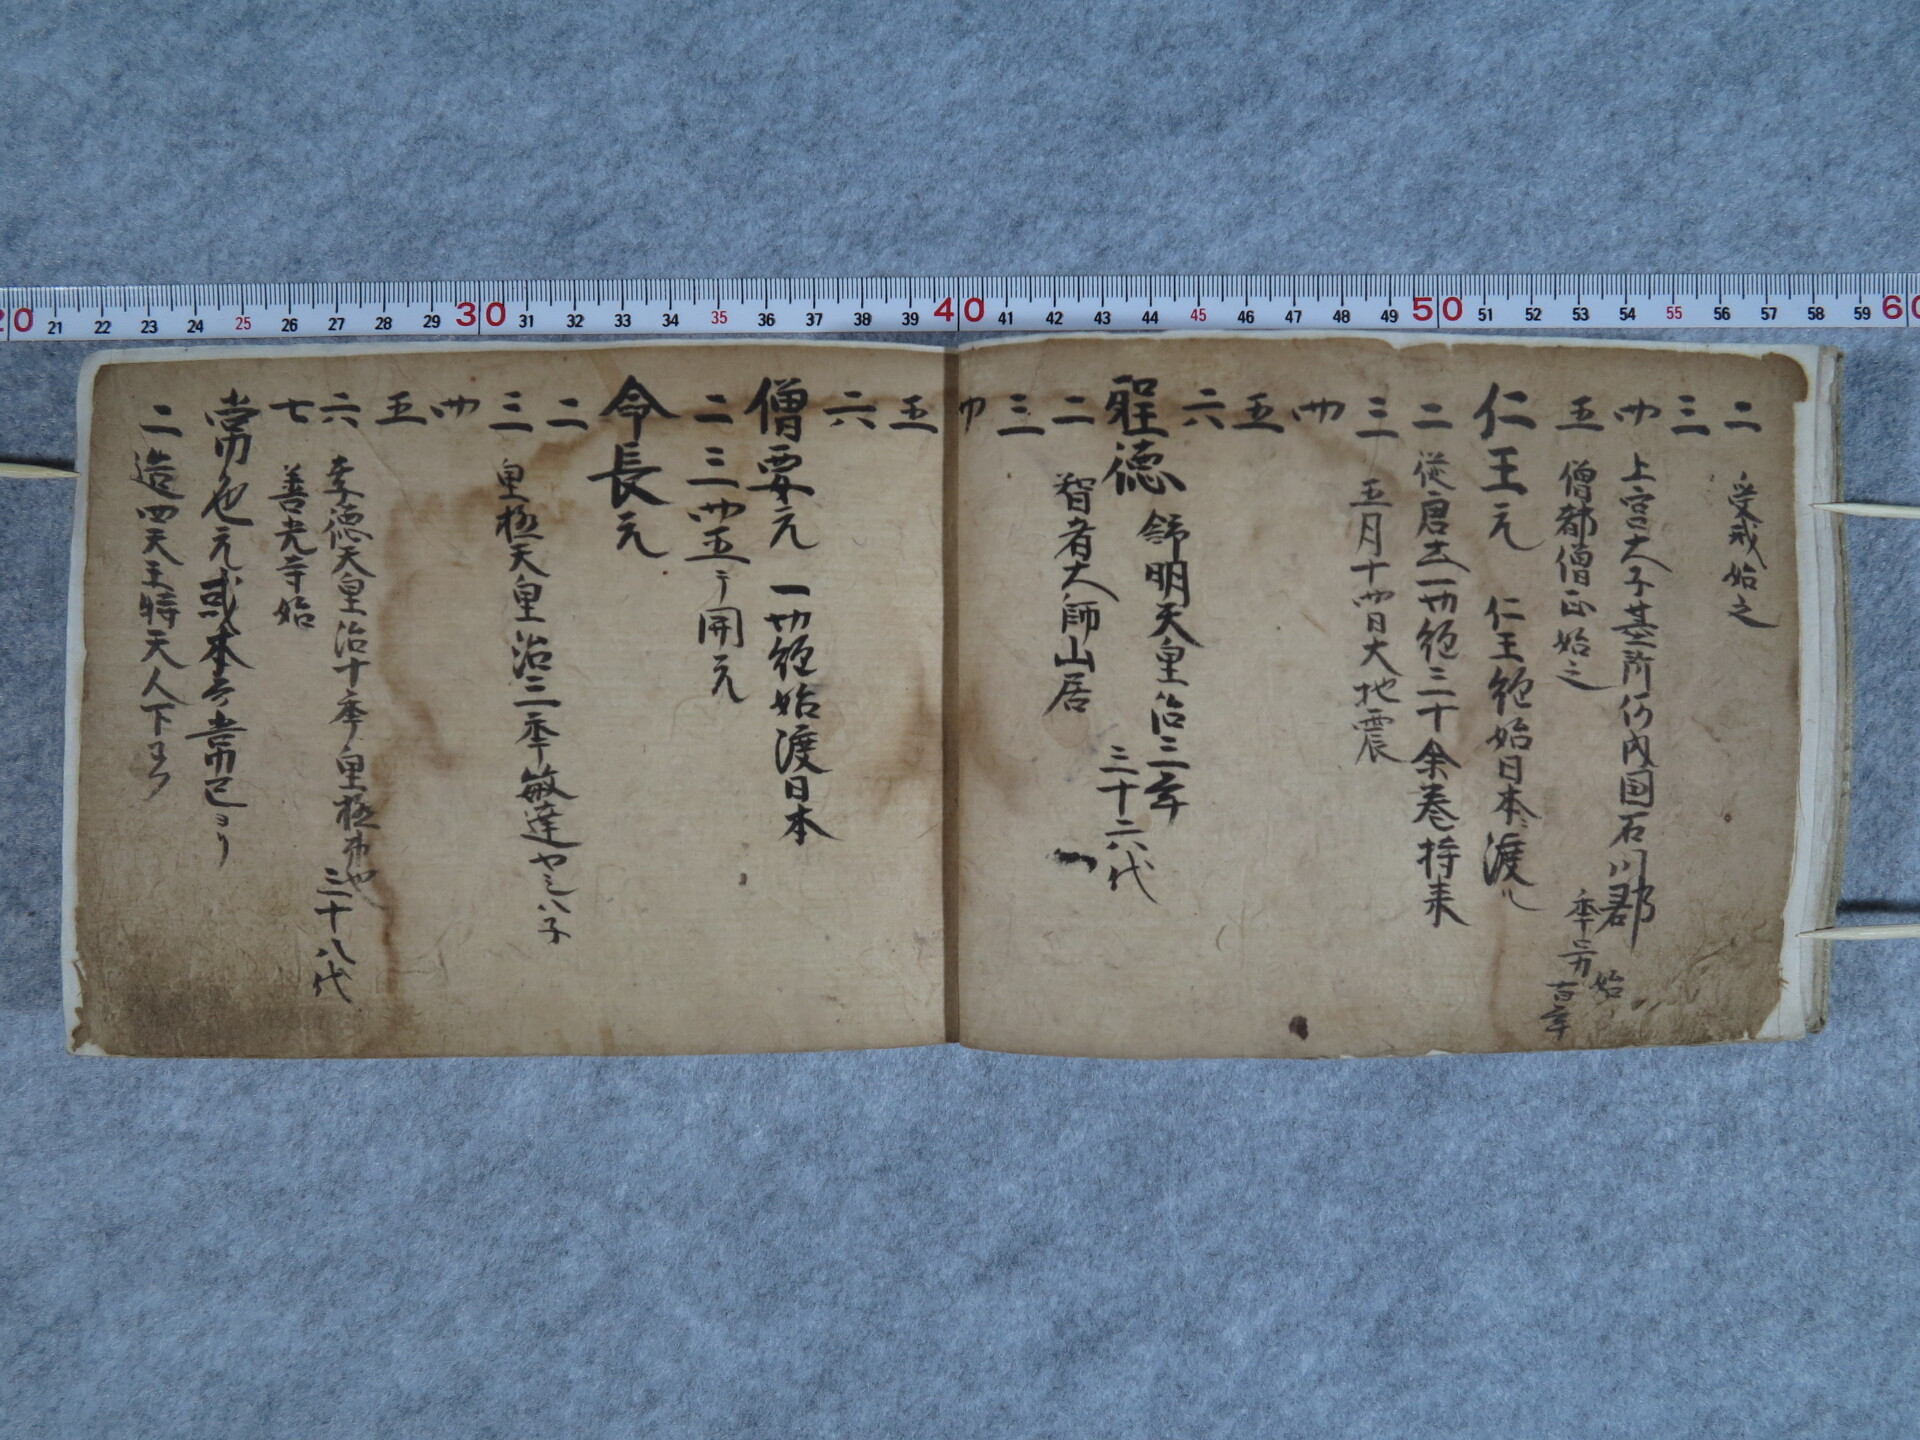 二 受戒始之
三
四 上宮太子墓所河内国石川郡
始
五 僧都僧正始之
年三万
百年
仁王元 仁王経始日本渡ル
二 従唐土一切経三十余巻持来
三 五月十四日大地震
四
五
六
聖徳 舒明天皇治三年
三十六代
二 智者大師山居
三
四
五
六
僧要元 一切経始渡日本
二三四五テ開元
命長元
二
三 皇極天皇治三年敏達ヤシハ子
四
五
六 孝徳天皇治十年皇極弟也
三十八代
七 善光寺始
常色元或本云常已ヨリ
二 造四天王時天人下玉フ
20 21 22 23 24 25 26 27 28 29 30 31 32 33 34 35 36 37 38 39 40 41 42 43 44 45 46 47 48 49 50 51 52 53 54 55 56 57 58 59 60